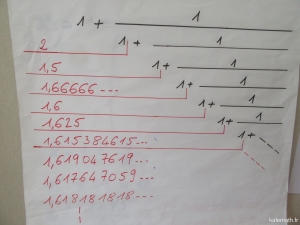 1 + 1
2 1 + 1
1,5 1 + 1
1,66666 --- 1 + 1
1,6 1 + 1
1,625 1 + 1
1,615384615 -- 1 +
1,619047619 --
1,617647059 ---
1,618181818 ---
kafemath.fr